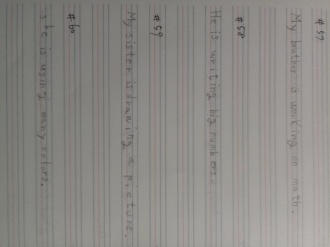 #57
My brother is working on math.
#58
He is writing big numbers.
#59
My sister is drawing a picture.
#60
She is using many colors.